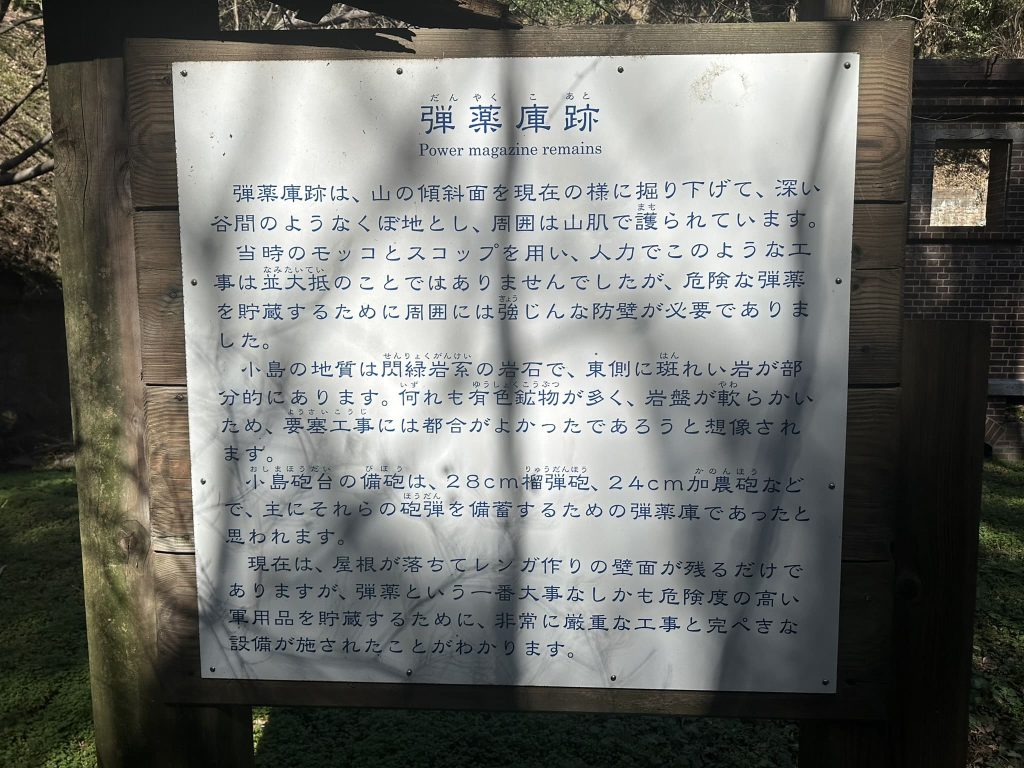 だんやくこあと
弾薬庫跡
Power magazine remains
弾薬庫跡は、山の傾斜面を現在の様に掘り下げて、深い
まも
谷間のようなくぼ地とし、周囲は山肌で護られています。
当時のモッコとスコップを用い、人力でこのような工
なみたいてい
事は並大抵のことではありませんでしたが、危険な弾薬
きょう
を貯蔵するために周囲には強じんな防壁が必要でありま
した。
せんりょくがんけい はん
小島の地質は閃緑岩系の岩石で、東側に斑れい岩が部
いず ゆうしょくこうぶつ やわ
分的にあります。何れも有色鉱物が多く、岩盤が軟らかい
ようさいこうじ
ため、要塞工事には都合がよかったであろうと想像され
ます。
おしまほうだい びほう りゅうだんほう かのんほう
小島砲台の備砲は、28cm榴弾砲、24cm加農砲など
ほうだん
で、主にそれらの砲弾を備蓄するための弾薬庫であったと
思われます。
現在は、屋根が落ちてレンガ作りの壁面が残るだけで
ありますが、弾薬という一番大事なしかも危険度の高い
軍用品を貯蔵するために、非常に厳重な工事と完ぺきな
設備が施されたことがわかります。